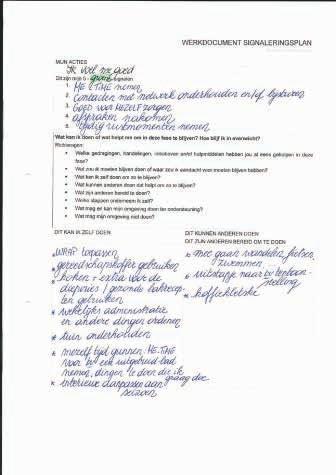 WERKDOCUMENT SIGNALERINGSPLAN
MIJN ACTIES
Ik voel me goed
Dit zijn mijn 5 groene signalen
1. ME & TIME nemen
2. Contacten met netwerk onderhouden en/of
3. GOED VOOR MEZELF zorgen
4. afspraken nakomen
5. Tijdig rustmomenten nemen
Wat kan ik doen of wat helpt me om in deze fase te blijven? Hoe blijf ik in evenwicht?
Richtvragen:
• Welke gedragingen, handelingen, initiatieven en/of hulpmiddelen hebben jou al eens geholpen in deze
fase?
• Wat zou ik moeten blijven doen of waar zou ik aandacht voor moeten blijven hebben?
• Wat kan ik zelf doen om zo te blijven?
• Wat kunnen anderen doen om zo te blijven?
• Wat zijn anderen bereid te doen?
• Welke stappen onderneem ik zelf?
• Wat mag er van mijn omgeving doen ter ondersteuning?
• Wat mag mijn omgeving niet doen?
DIT KAN IK ZELF DOEN
DIT KUNNEN ANDEREN DOEN
DIT ZIJN ANDEREN BEREID OM TE DOEN
* WRAP toepassen
* gereedschapskoffer gebruiken
* koken + extra voor de
diepvries / gezonde
gebruiken
* wekelijks administratie
en andere dingen ordenen
* tuin onderhouden
* mezelf tijd gunnen: ME-TIME
voor bv een uitgebreid bad
nemen, dingen te doen die ik
graag doe
* interieur aanpassen aan
seizoen
* mee gaan wandelen, fietsen,
zwemmen
* uitstapje naar bv tentoon-
stelling
* koffiekletske